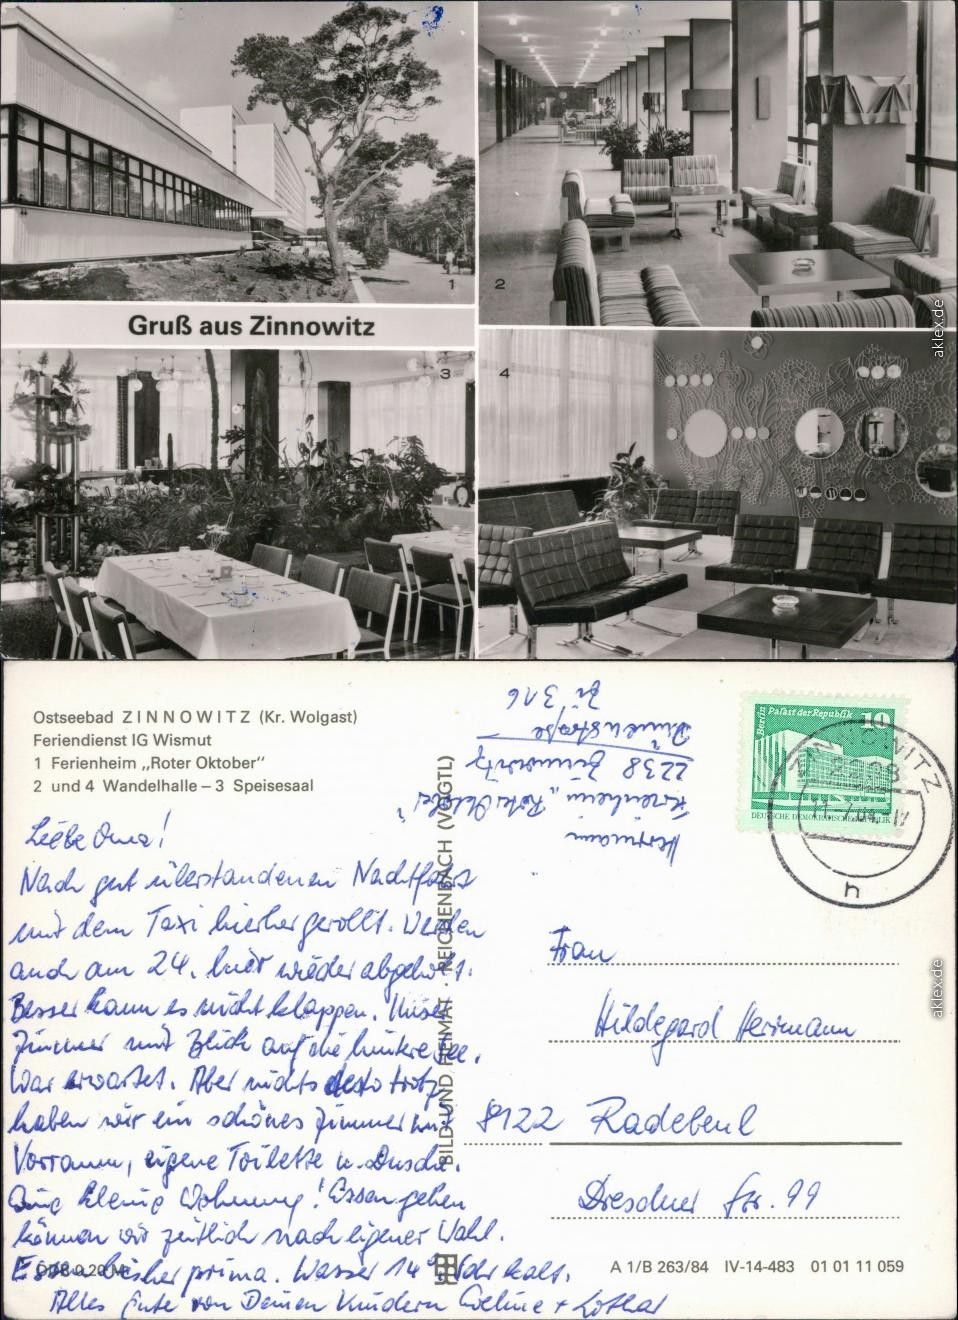 1
2
Gruß aus Zinnowitz
3
4
aklex.de
Ostseebad ZINNOWITZ (Kr. Wolgast)
Feriendienst IG Wismut
1 Ferienheim „Roter Oktober“
2 und 4 Wandelhalle – 3 Speisesaal
Herrmann
Ferienheim „Roter Oktober“
2238 Zinnowitz
Dünenstraße
Zi 316
Berlin Palast der Republik 10
DEUTSCHE DEMOKRATISCHE REPUBLIK
ZINNOWITZ
2238
h
Liebe Oma!
Nach gut überstandenen Nachtfahrt
mit dem Taxi hierher gerollt. Werden
auch am 24. hier wieder abgeholt.
Besser kann es nicht klappen. Unser
Zimmer mit Blick auf die hintere See.
War erwartet. Aber nichts desto trotz
haben wir ein schönes Zimmer mit
Vorraum, eigene Toilette u. Dusche.
Eine kleine Wohnung! Essen gehen
können wir zeitlich nach eigener Wahl.
Essen bisher prima. Wasser 14° sehr kalt.
Alles Gute von Deinen Kindern Eveline + Lothar
BILD UND HEIMAT · REICHENBACH (VOGTL)
Frau
Hildegard Herrmann
8122 Radebeul
Dresdner Str. 99
aklex.de
A 1/B 263/84 IV-14-483 01 01 11 059